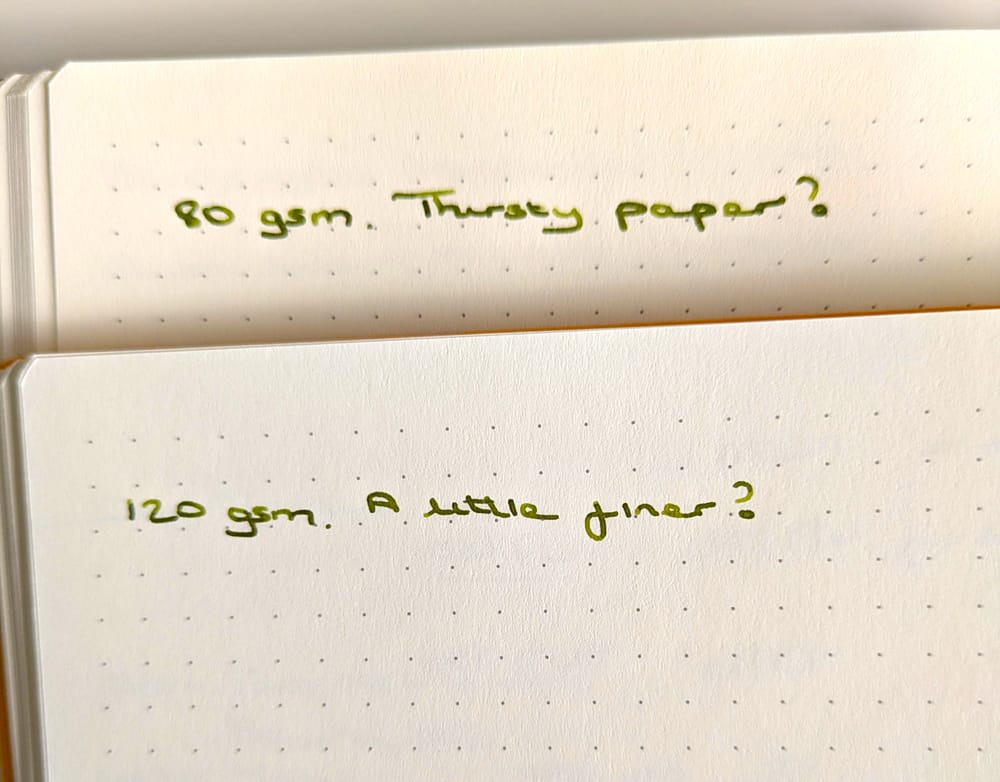 80 gsm. Thirsty paper?
120 gsm. A little finer?